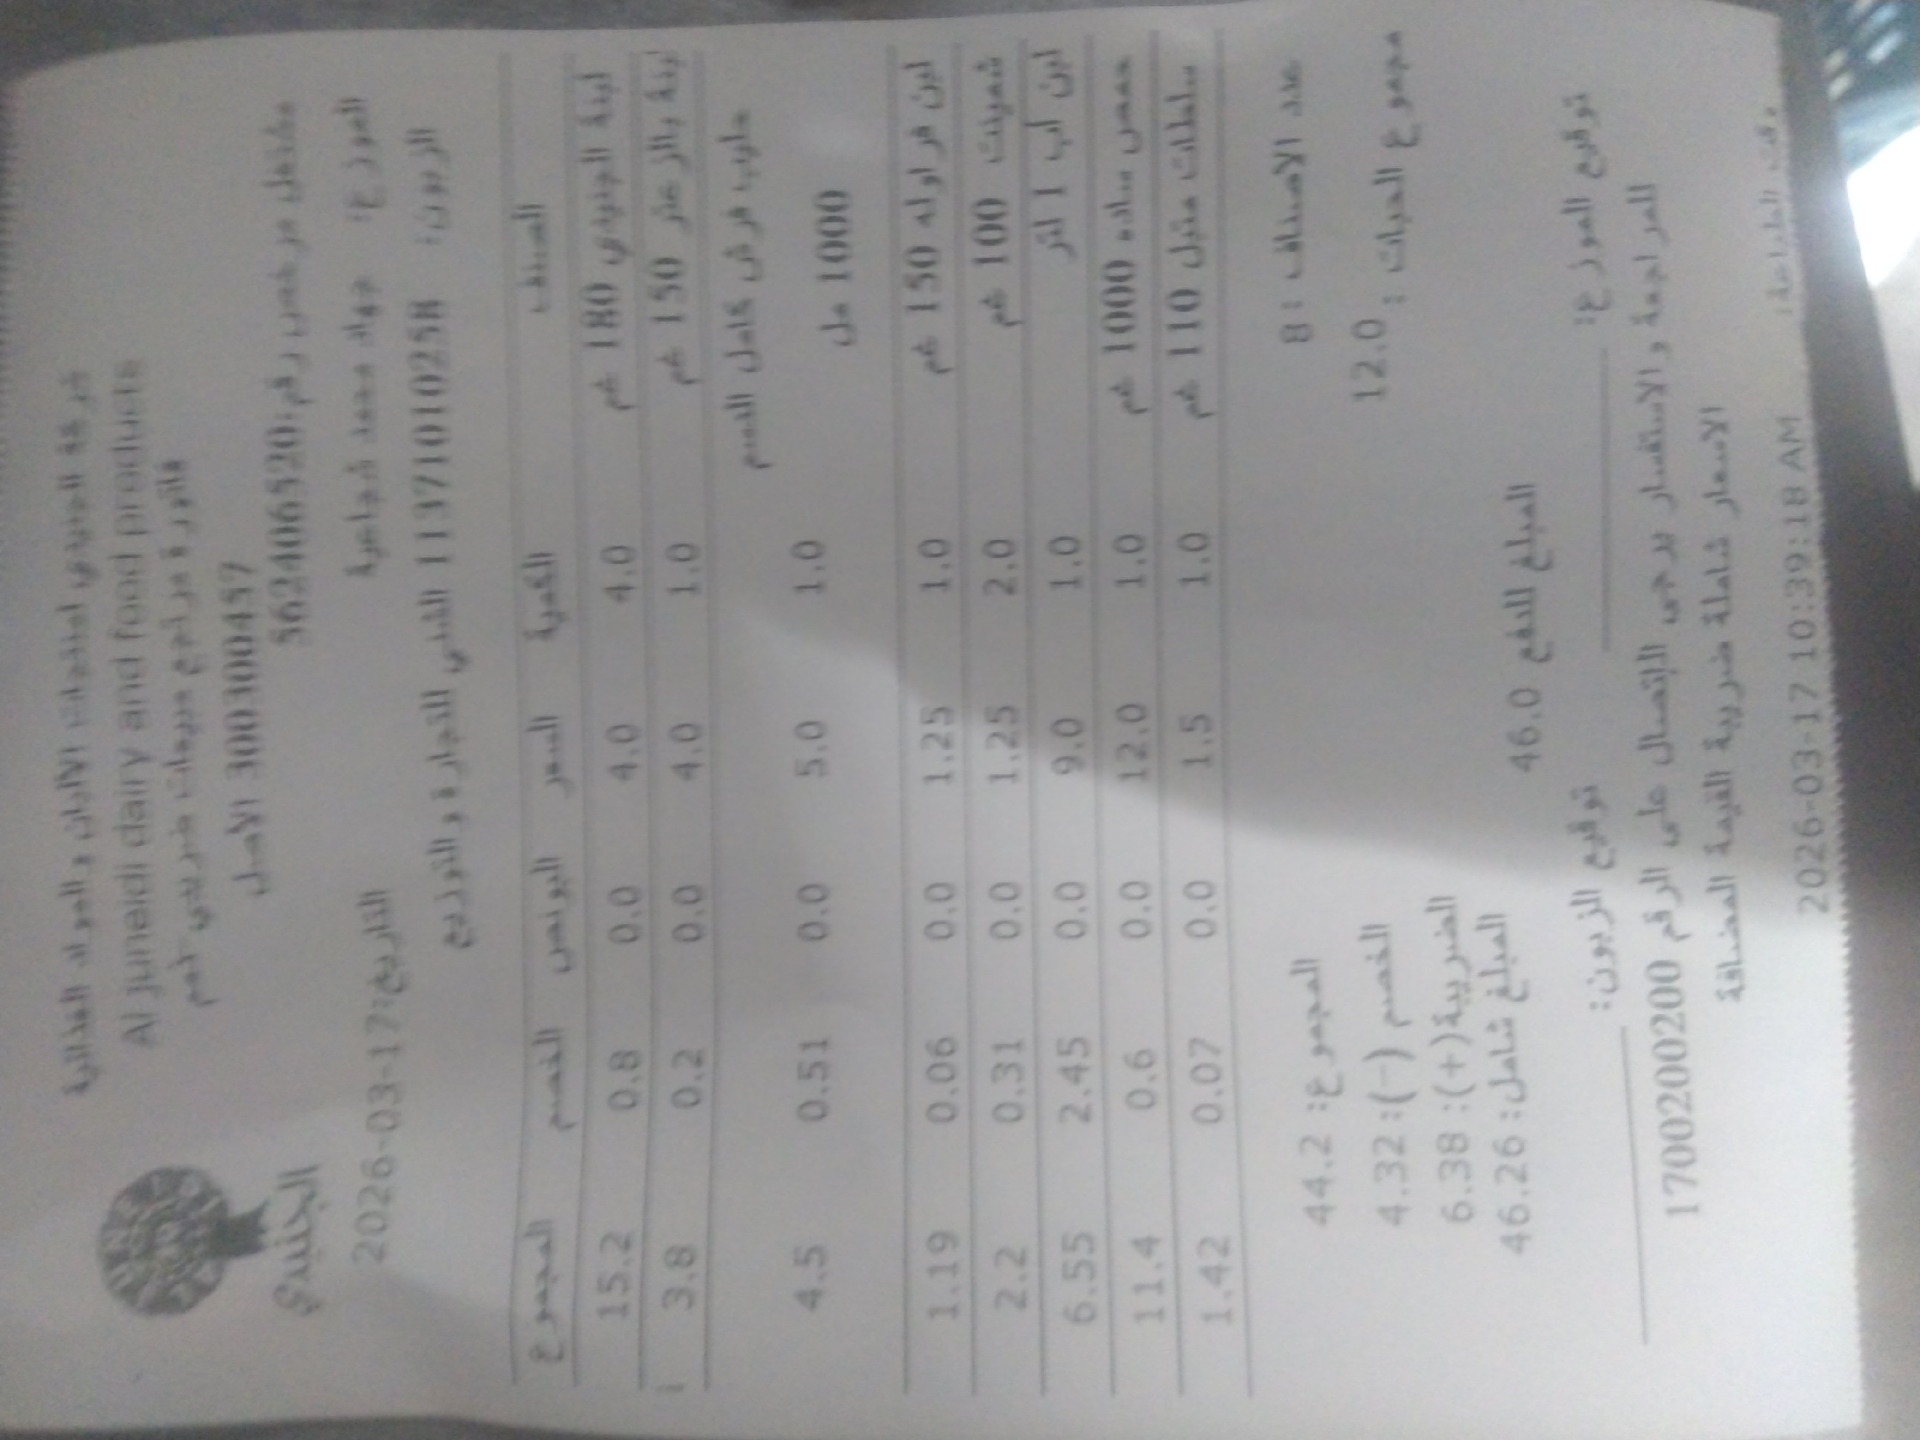 شركة الجنيدي لمنتجات الألبان والمواد الغذائية
Al juneidi dairy and food products
فاتورة مراجع مبيعات ضريبي خصم
300300457 الاصل
مشتغل مرخص رقم: 562406520
الجنيدي
الموزع: جهاد محمد شجاعية
التاريخ: 2026-03-17
الزبون: 1137101010258 الشني للتجارة والتوزيع
الصنف الكمية السعر البونص الخصم المجموع
لبنة الجنيدي 180 غم 4.0 4.0 0.0 0.8 15.2
لبنة بالزعتر 150 غم 1.0 4.0 0.0 0.2 3.8
حليب فرش كامل الدسم 1000 مل 1.0 5.0 0.0 0.51 4.5
لبن فراوله 150 غم 1.0 1.25 0.0 0.06 1.19
شمينت 100 غم 2.0 1.25 0.0 0.31 2.2
لبن اب 1 لتر 1.0 9.0 0.0 2.45 6.55
حمص ساده 1000 غم 1.0 12.0 0.0 0.6 11.4
سلطات متبل 110 غم 1.0 1.5 0.0 0.07 1.42
عدد الاصناف : 8
المجموع: 44.2
مجموع الحبات : 12.0
الخصم (-): 4.32
الضريبة(+): 6.38
المبلغ شامل: 46.26
المبلغ للدفع 46.0
توقيع الموزع:
توقيع الزبون:
للمراجعة والاستفسار يرجى الإتصال على الرقم 1700200200
الاسعار شاملة ضريبة القيمة المضافة
وقت الطباعة: 2026-03-17 10:39:18 AM